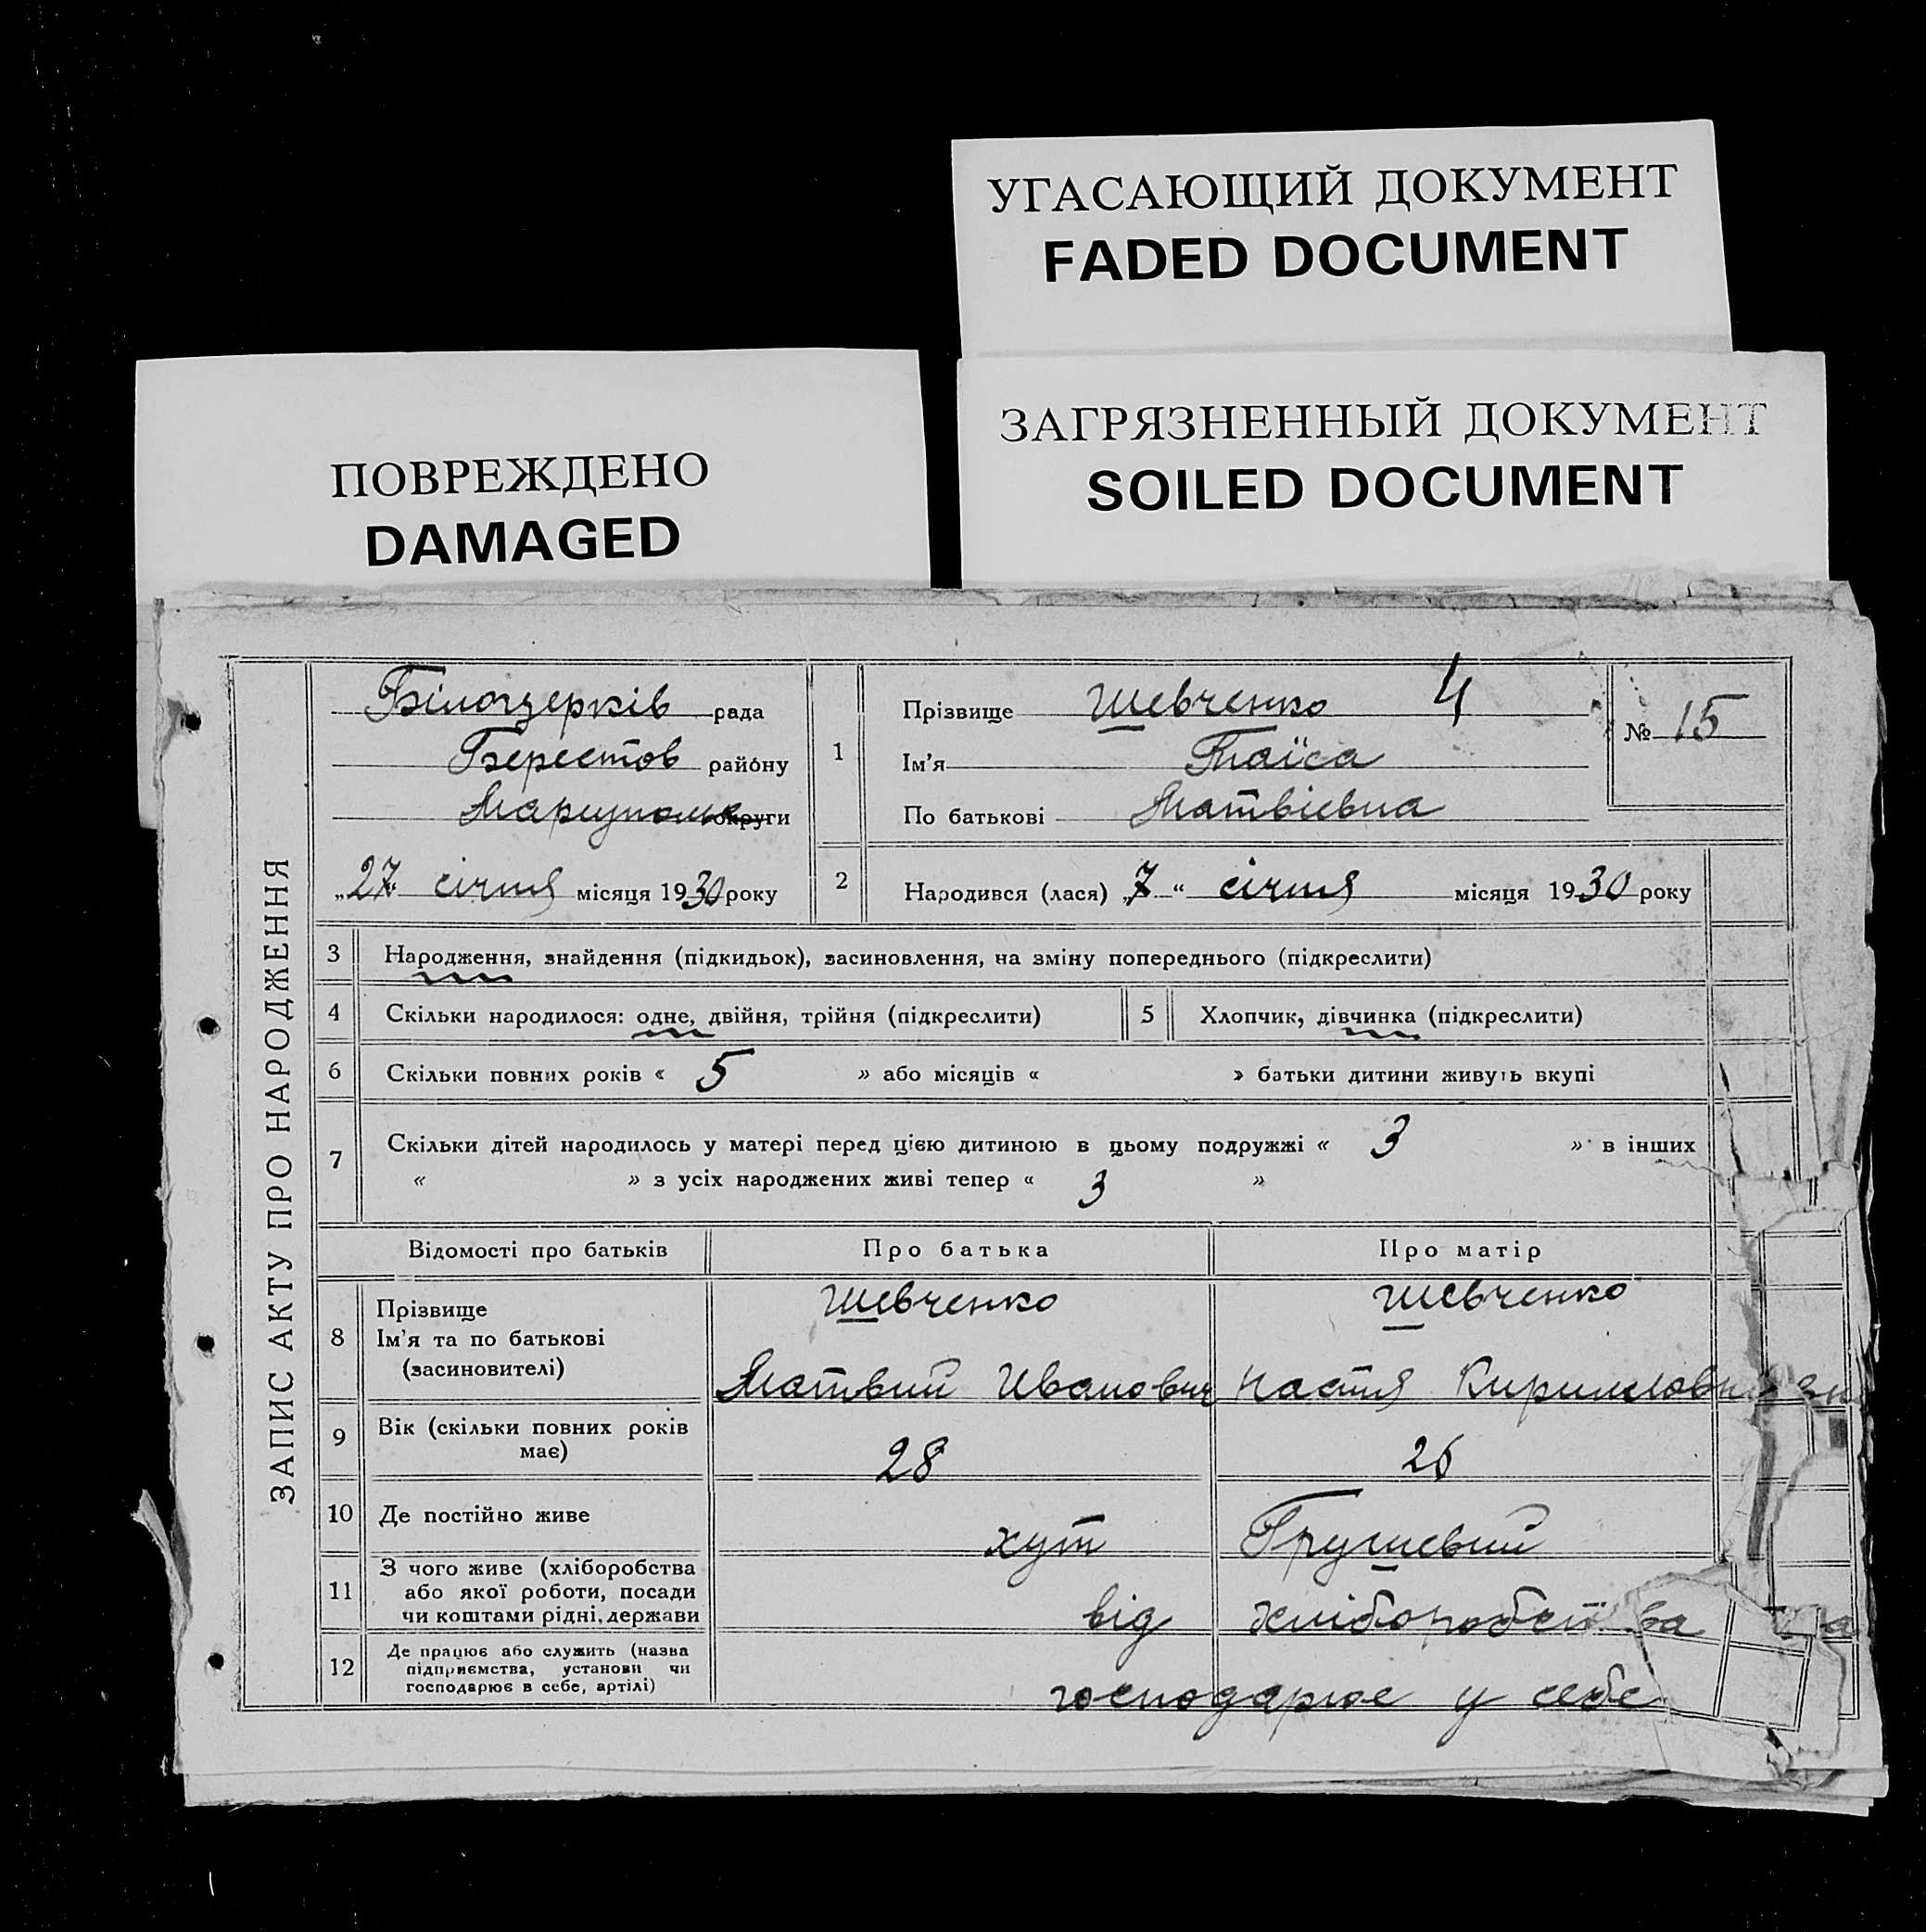 УГАСАЮЩИЙ ДОКУМЕНТ
FADED DOCUMENT
ЗАГРЯЗНЕННЫЙ ДОКУМЕНТ
SOILED DOCUMENT
ПОВРЕЖДЕНО
DAMAGED
ЗАПИС АКТУ ПРО НАРОДЖЕННЯ
Білоцерків рада
Берестов району
Маріупольс округи
„27“ січня місяця 1930 року
1
Прізвище Шевченко 4
Ім'я Таїса
По батькові Матвієвна
№ 15
2 Народився (лася) „7“ січня місяця 1930 року
3 Народження, знайдення (підкидьок), засиновлення, на зміну попереднього (підкреслити)
4 Скільки народилося: одне, двійня, трійня (підкреслити) 5 Хлопчик, дівчинка (підкреслити)
6 Скільки повних років « 5 » або місяців « » батьки дитини живуть вкупі
7 Скільки дітей народилось у матері перед цією дитиною в цьому подружжі « 3 » в інших
« » з усіх народжених живі тепер « 3 »
Відомості про батьків Про батька Про матір
8 Прізвище Шевченко Шевченко
Ім'я та по батькові
(засиновителі) Матвий Иванович Настя Кирилловна
9 Вік (скільки повних років
має) 28 26
10 Де постійно живе хут Грушевий
11 З чого живе (хліборобства
або якої роботи, посади
чи коштами рідні, держави від хліборобства
12 Де працює або служить (назва
підприємства, установи чи
господарює в себе, артілі) господарює у себе